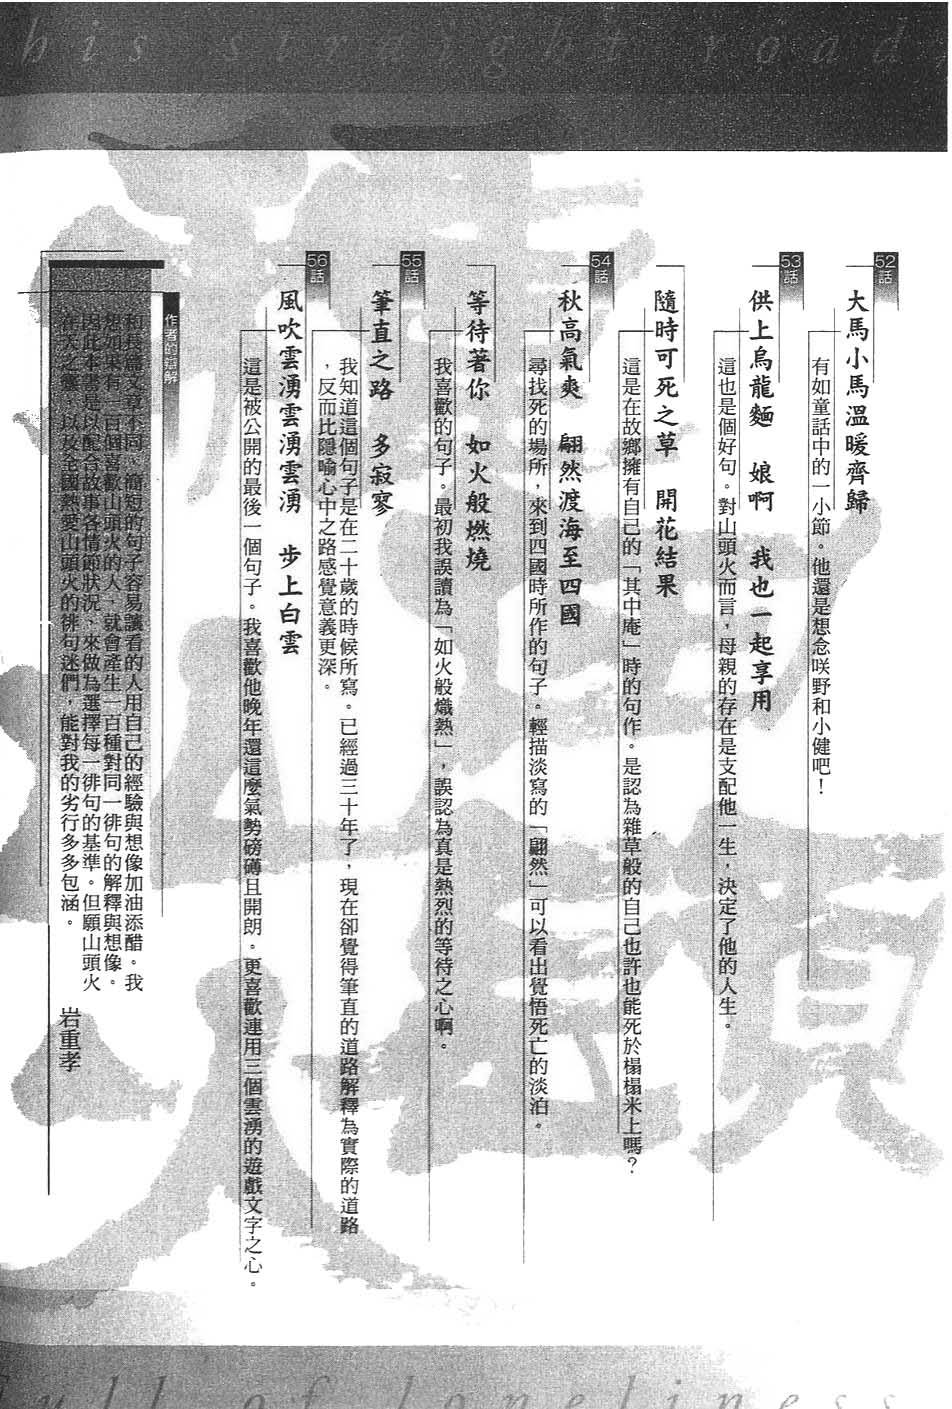 his straight road,
52話
大馬小馬溫暖齊歸
有如童話中的一小節。他還是想念咲野和小健吧！
53話
供上烏龍麵　娘啊　我也一起享用
這也是個好句。對山頭火而言，母親的存在是支配他一生，決定了他的人生。
隨時可死之草　開花結果
這是在故鄉擁有自己的「其中庵」時的句作。是認為雜草般的自己也許也能死於榻榻米上嗎？
54話
秋高氣爽　翩然渡海至四國
尋找死的場所，來到四國時所作的句子。輕描淡寫的「翩然」可以看出覺悟死亡的淡泊。
等待著你　如火般燃燒
我喜歡的句子。最初我誤讀為「如火般熾熱」，誤認為真是熱烈的等待之心啊。
55話
筆直之路　多寂寥
我知道這個句子是在二十歲的時候所寫。已經過三十年了，現在卻覺得筆直的道路解釋為實際的道路
，反而比隱喻心中之路感覺意義更深。
56話
風吹雲湧雲湧雲湧　步上白雲
這是被公開的最後一個句子。我喜歡他晚年還這麼氣勢磅礡且開朗。更喜歡連用三個雲湧的遊戲文字之心。
作者的
和長篇文章不同、簡短的句子容易讓看的人用自己的經驗與想像加油添醋。我
想如果有一百個喜歡山頭火的人，就會產生一百種對同一徘句的解釋與想像。
因此本書是以配合故事各情節狀況、來做為選擇每一徘句的基準。但願山頭火
在天之靈、以及全國熱愛山頭火的徘句迷們，能對我的劣行多多包涵。
岩重孝
full of loneliness